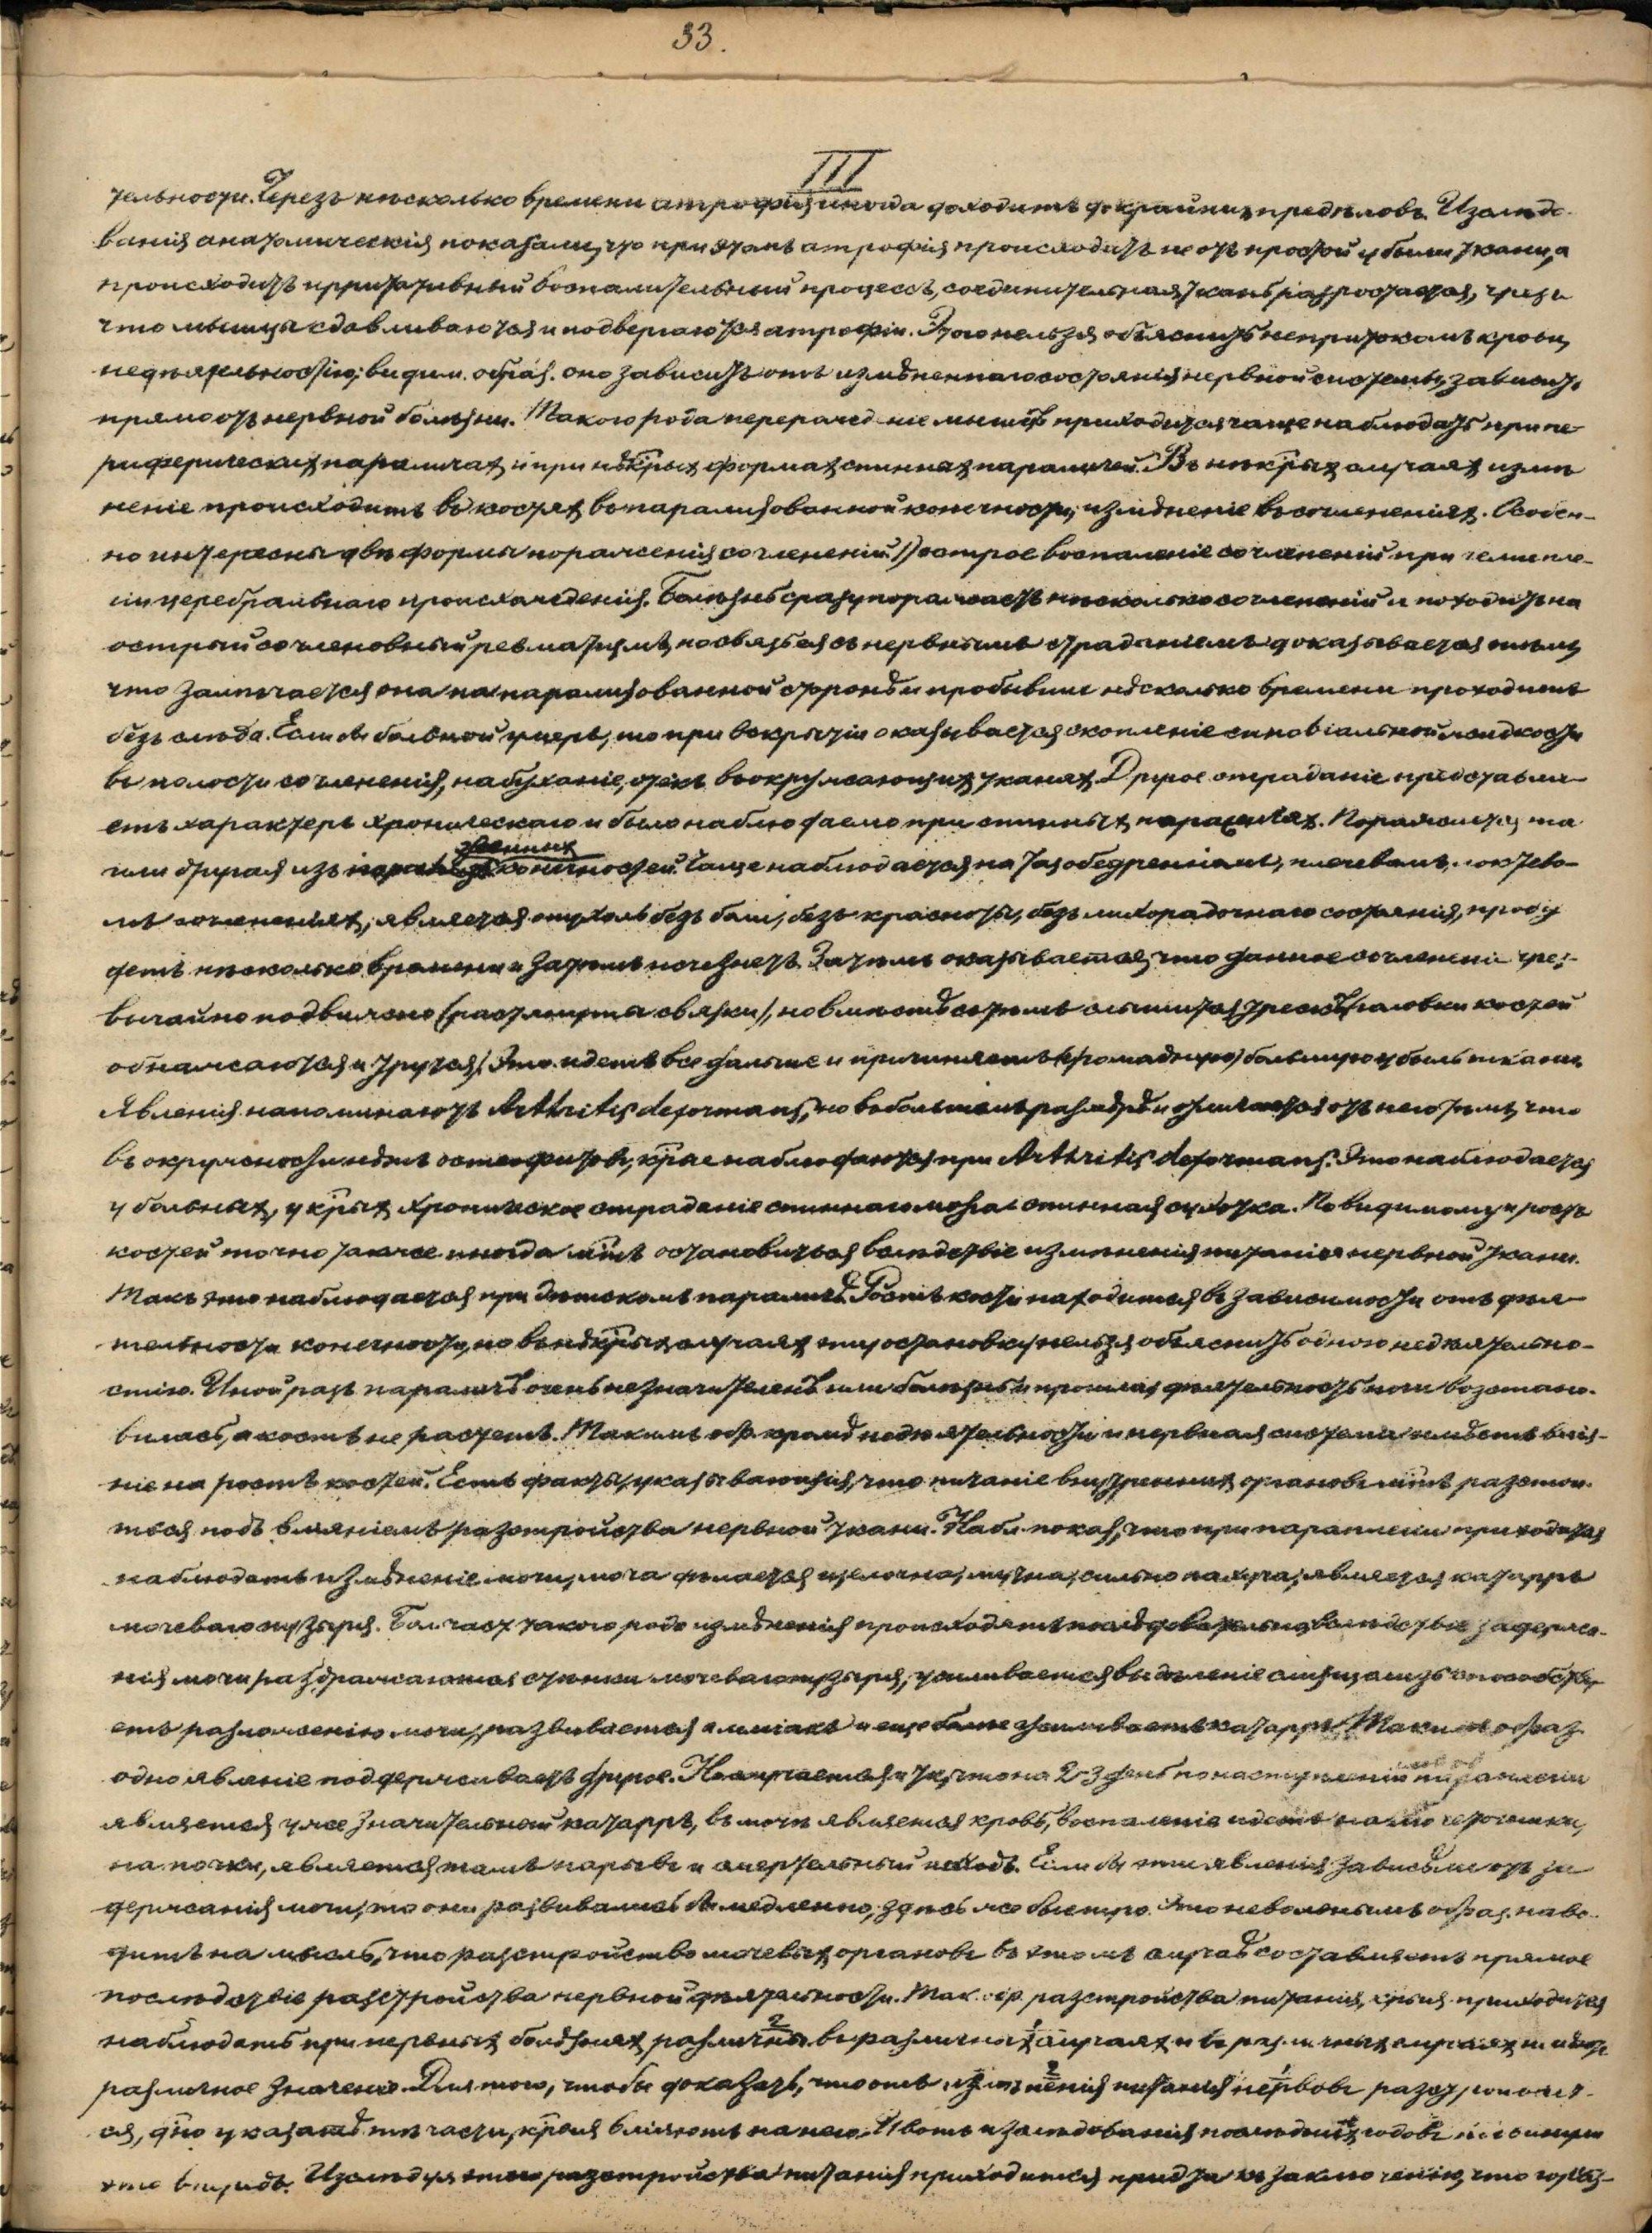 33.
III
тельности. Черезъ нѣсколько времени атрофія иногда доходитъ до крайнихъ предѣловъ. Изслѣдо-
ванія анатомическія показали, что при этомъ атрофія происходитъ не отъ простой убыли ткани, а
происходитъ ирритативный воспалительный процессъ, соединительная ткань разростается, чрезъ
что мышцы сдавливаются и подвергаются атрофіи. Этого нельзя объяснить непритокомъ крови,
недѣятельностію; видим. образ. оно зависитъ отъ измѣненнаго состоянія нервной системы, зависитъ
прямо отъ нервной болѣзни. Такого рода перерожденіе мышцъ приходится чаще наблюдать при пе-
риферическихъ параличахъ и при нѣкрыхъ формахъ спинныхъ параличей. Въ нѣкрыхъ случаяхъ измѣ
неніе происходитъ въ костяхъ въ парализованной конечности, измѣненіе въ сочлененіяхъ. Особен-
но интересны двѣ формы пораженія сочлененій: 1) острое воспаленіе сочлененій при гемипле-
гіи церебральнаго происхожденія. Болѣзнь сразу поражаетъ нѣсколько сочлененій и походитъ на
острый сочленовный ревматизмъ, но связь ея съ нервнымъ страданіемъ доказывается тѣмъ,
что замѣчается она на парализованной сторонѣ и пробывши нѣсколько времени проходитъ
безъ слѣда. Если бы больной умеръ, то при вскрытіи оказывается скопленіе синовіальной жидкости
въ полости сочлененія, набуханіе, отекъ въ окружающихъ тканяхъ. Другое страданіе представля-
етъ характеръ хроническаго и было наблюдаемо при спинныхъ параличахъ. Поражается та
или другая изъ конечностей. Чаще наблюдается на тазобедренномъ, плечевомъ, локтево-
мъ сочлененіяхъ, является опухоль безъ боли, безъ красноты, безъ лихорадочнаго состоянія, пробу
детъ нѣсколько времени и затѣмъ исчезнетъ. Затѣмъ оказывается, что данное сочлененіе чрез-
вычайно подвижно (растянуты связки), но вмѣстѣ съ тѣмъ слышится трескъ (головки костей
обнажаются и трутся). Это идетъ все дальше и причиняетъ (громадную) большую убыль ткани.
Явленія напоминаютъ Arthritis deformans, но въ большемъ размѣрѣ и отличается отъ него тѣмъ, что
въ окружности нѣтъ остеофитовъ, крые наблюдаются при Arthritis deformans. Это наблюдается
у больныхъ, у крыхъ хроническое страданіе спиннаго мозга и спинная сухотка. По видимому и ростъ
костей точно также иногда мжтъ остановиться вслѣдствіе измѣненія питанія нервной ткани.
Такъ это наблюдается при дѣтскомъ параличѣ. Ростъ кости находится въ зависимости отъ дѣя-
тельности конечности, но въ нѣкрыхъ случаяхъ эту остановку нельзя объяснить одною недѣятельно-
стію. Иной разъ параличъ очень незначителенъ или болѣзнь и прошла, дѣятельность ноги возстано-
вилась, а кость не растетъ. Такимъ обр. кромѣ недѣятельности и нервная система имѣетъ влія-
ніе на ростъ костей. Есть факты, указывающіе, что питаніе внутреннихъ органовъ мжтъ разстрои-
ться подъ вліяніемъ разстройства нервной ткани. Набл. показ., что при параплегіи приходится
наблюдать измѣненіе мочи, моча дѣлается щелочна, мутна, сильно пахуча, является катарръ
мочеваго пузыря. Бол. част. такого рода измѣненія происходятъ послѣдовательно, вслѣдствіе задержа-
нія мочи раздражаются стѣнки мочеваго пузыря, усиливается выдѣленіе слизи, слизь способству-
етъ разложенію мочи, развивается амміакъ и еще болѣе усиливаетъ катарръ. Такимъ образ.
одно явленіе поддерживаетъ другое. Но случается и так, что на 2-3 день по наступленіи параплегіи
является уже значительный катарръ, въ мочѣ является кровь, воспаленіе идетъ на мочеточники,
на почки, является тамъ нарывъ и смертельный исходъ. Если бы эти явленія зависѣли отъ за
держанія мочи, то они развивались бы медленно, здѣсь же быстро. Это невольнымъ образ. наво-
дитъ на мысль, что разстройство мочевыхъ органовъ въ этомъ случаѣ составляетъ прямое
послѣдствіе разстройства нервной дѣятельности. Так. обр. разстройства питанія, крыя приходится
наблюдать при нервныхъ болѣзняхъ различны въ различныхъ случаяхъ и въ различныхъ случаяхъ имѣютъ
различное значеніе. Для того, чтобы доказать, что отъ измѣненія питанія нервовъ разстроивает-
ся, дно указать тѣ части, крыя вліяютъ на него. И вотъ изслѣдованія послѣднихъ годовъ
это впередъ. Изслѣдуя этого разстройства питанія приходится придти къ заключенію, что